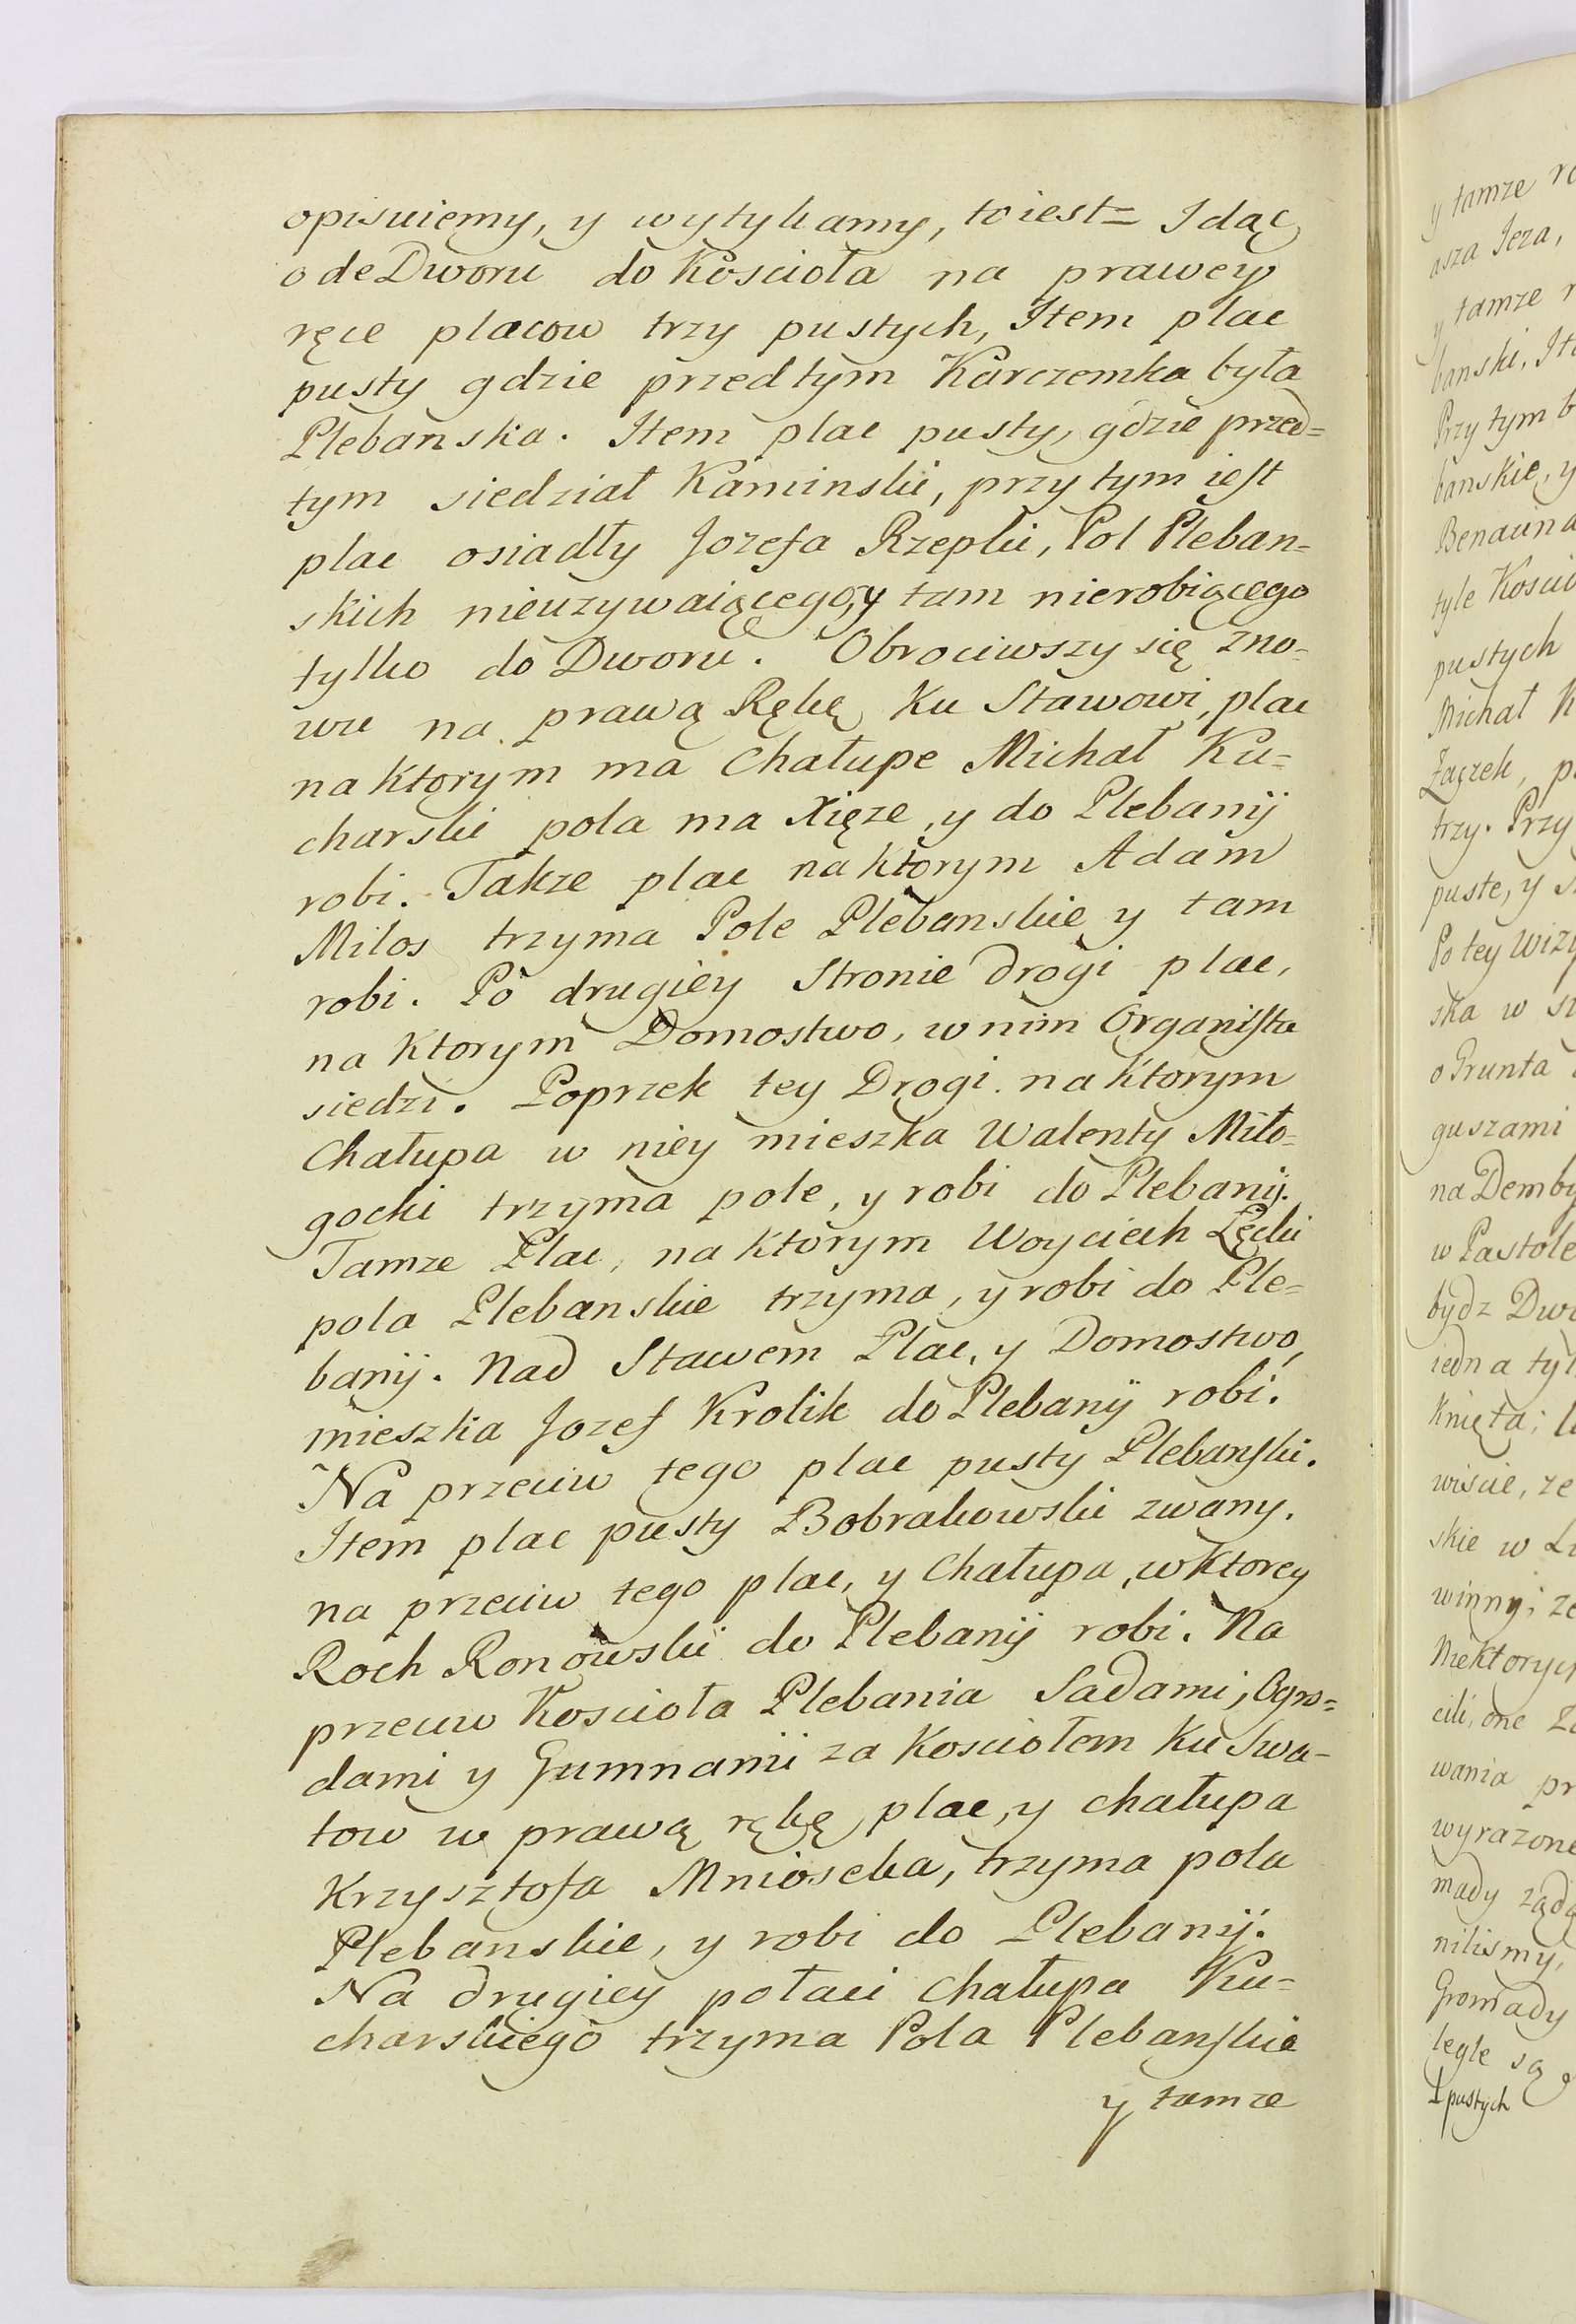 opisuiemy, y wytykamy, toiest= Idąc
odeDworu do Kościoła na prawey
ręce placow trzy pustych, Item plac
pusty gdzie przedtym Karczemka była
Plebanska. Item plac pusty, gdzie przed=
tym siedział Kaminski, przytym iest
plac osiadły Jozefa Rzepki, Pol Pleban=
skich nieuzywaiącego, y tam nierobiącego
tylko do Dworu. Obrociwszy się zno=
wu na prawą Rękę Ku Stawowi, plac
na Ktorym ma Chałupe Michał Ku=
charski pola ma Xięze, y do Plebanij
robi. Takze plac na Ktorym Adam
Milos trzyma Pole Plebanskie y tam
robi. Po drugiey Stronie drogi plac,
na Ktorym Domostwo, w nim Organista
siedzi. Poprzek tey Drogi na Ktorym
Chałupa w niey mieszka Walenty Miło=
gocki trzyma pole, y robi do Plebanij.
Tamze Plac, na Ktorym Woyciech Lęcki
pola Plebanskie trzyma, y robi do Ple=
banij. Nad Stawem Plac, y Domostwo,
mieszka Jozef Krolik do Plebanij robi.
Na przeciw tego plac pusty Plebanski.
Item plac pusty Bobrakowski zwany.
na przeciw tego plac, y Chałupa, w Ktorey
Roch Ronowski do Plebanij robi. Na
przeciw Kościoła Plebania Sadami, Ogro=
dami y Gumnami za Kosciołem Ku Swa=
tow w prawą rękę plac, y chałupa
Krzysztofa Mniöscka, trzyma pola
Plebanskie, y robi do Plebanij.
Na drugiey połaci Chałupa Ku=
charskiego trzyma Pola Plebanskie
y tamze
y tamze
asza Jeza,
y tamze
banski,
Przy tym
banskie, y
tyle
pustych
Michał
trzy. Przy
puste, y
Po tey
ska w
o Grunta
guszami
na
w
bydz
iedna
wiscie, ze
skie w
winny;
cili, one
wania
nilismy,
Gromady
legle są
pustych